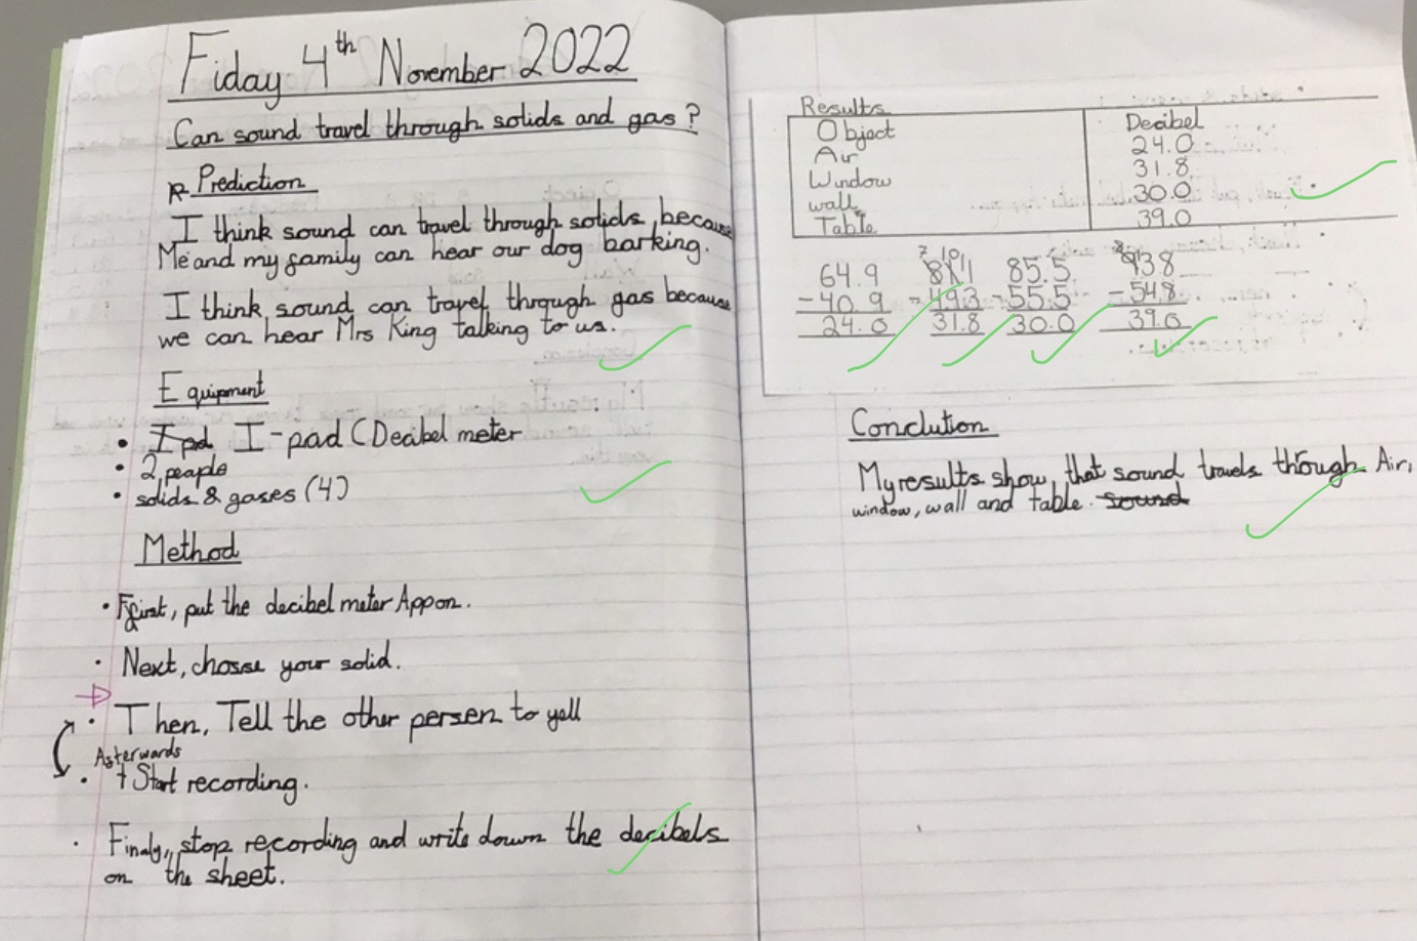 Fiday 4th November 2022
Can sound travel through solids and gas?
Prediction
I think sound can travel through solids, because
Me and my family can hear our dog barking.
I think sound can travel through gas because
we can hear Mrs King talking to us.
Equipment
• I pd I-pad (Decibel meter
• 2 people
• solids & gases (4)
Method
• First, put the decibel meter App on.
• Next, choose your solid.
• Then, Tell the other persen to yell
Afterwards
• Start recording.
• Finaly, stop recording and write down the decibels
on the sheet.
Results
Object Decibel
Air 24.0
Window 31.8
wall 30.0
Table 39.0
64.9 811 85.5 938
-40.9 -493 -55.5 -548
24.0 31.8 30.0 39.0
Conclution
My results show that sound travels through Air,
window, wall and table. sound